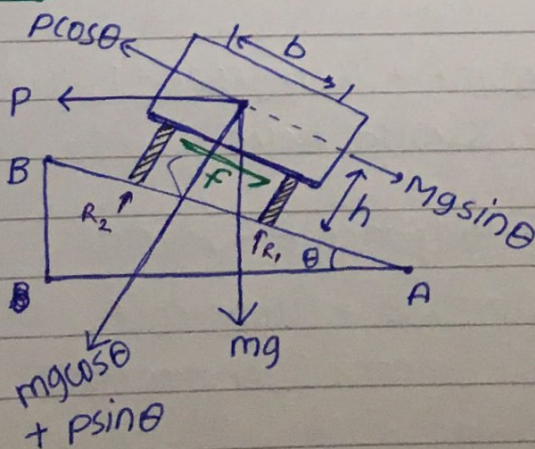 Pcosθ
b
P
B
f
Mgsinθ
h
R2
R1
θ
B
A
mg
mgcosθ
+ Psinθ